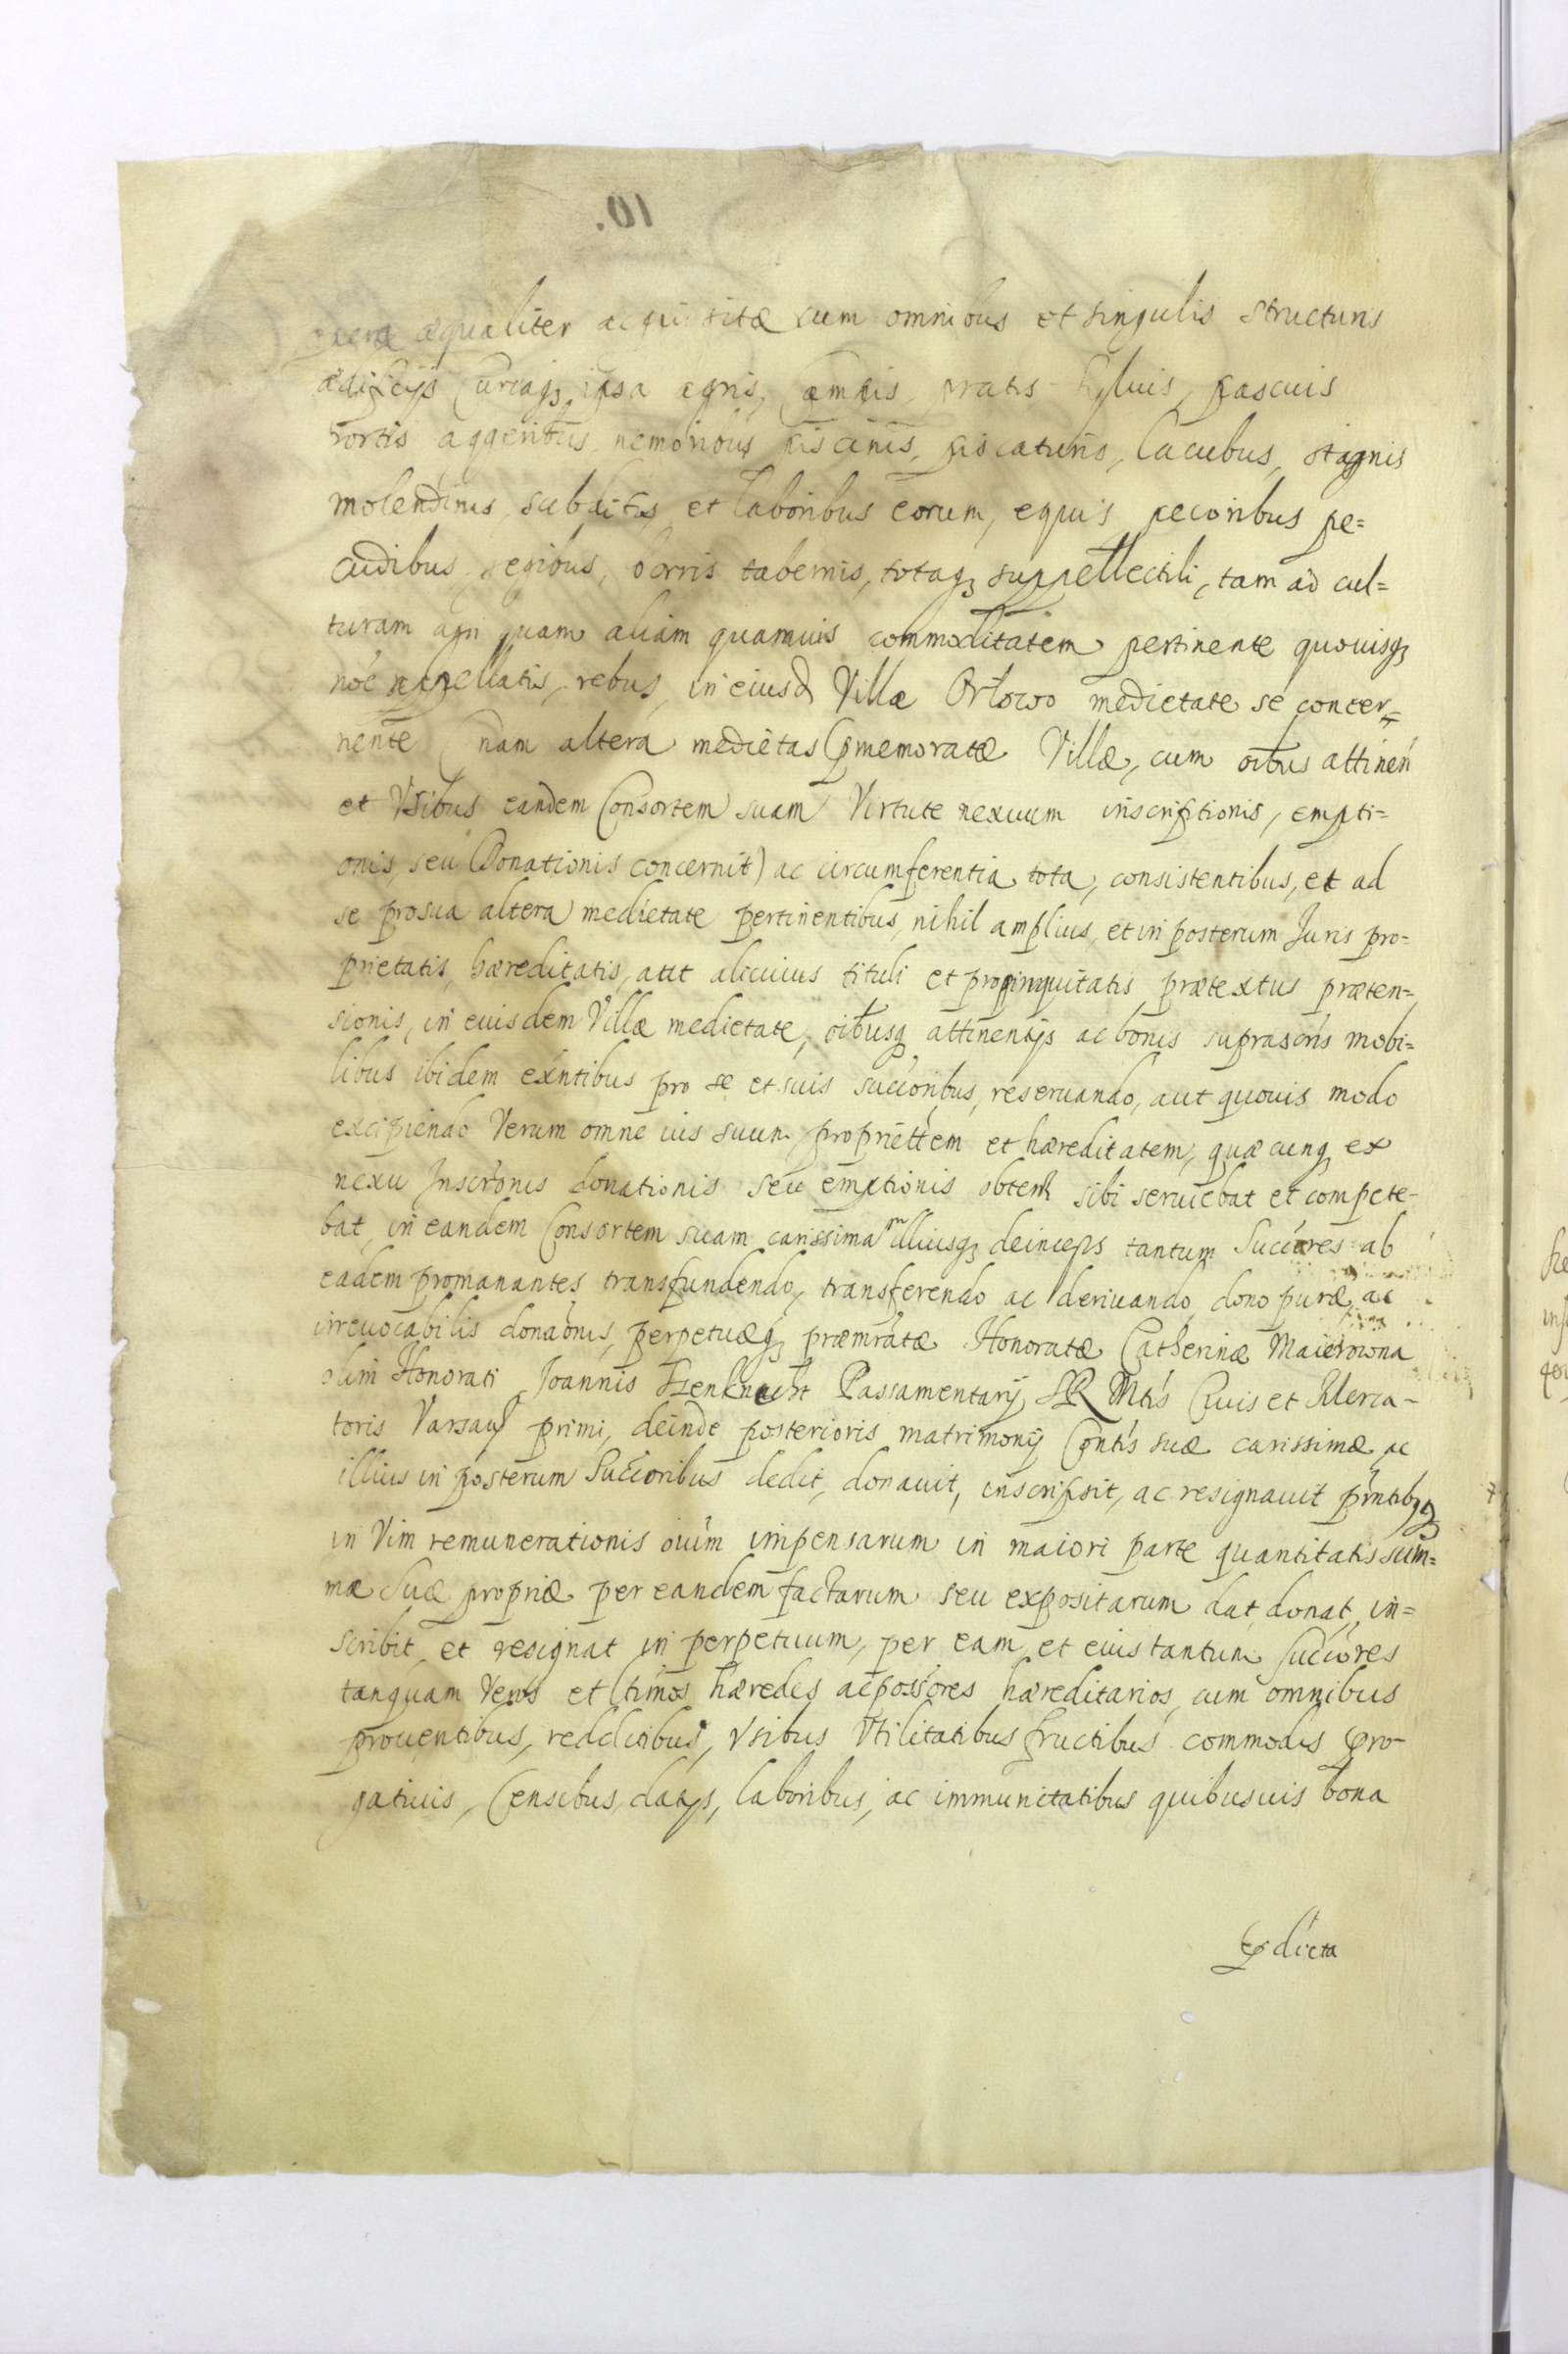 10.
æqualiter acquisitæ cum omnibus et singulis structuris
ædificijs Curiaq3 ipsa agris, campis, pratis Syluis, pascuis
hortis aggeribus, nemoribus piscinis, piscaturis, lacubus, stagnis
molendinis subditis et laboribus eorum, equis pecoribus pe=
cudibus segibus, horris tabernis, totaq3 suppellectili, tam ad cul=
turam agri quam aliam quamuis commoditatem pertinente quouisq3
nõe appellatis, rebus, in eiusd Villæ Orłowo medietate se concer=
nente (nam altera medietas pmemoratæ Villæ, cum oibus attineñ
et Vsibus eandem Consortem suam Virtute nexuum inscriptionis, empti=
onis, seu Donationis concernit) ac circumferentia tota, consistentibus, et ad
se pro sua altera medietate pertinentibus, nihil amplius, et in posterum Juris pro=
prietatis, hæreditatis, aut alicuius tituli et propinquitatis prætextus præten=
sionis, in eiusdem Villæ medietate, oibusq3 attinentijs ac bonis suprascris mobi=
libus ibidem exñtibus pro se et suis succoribus, reseruando, aut quouis modo
excipiendo Verum omne ius suum, propriettem et hæreditatem, quæcunq3 ex
nexu Inscrõnis donationis seu emptionis obtent sibi seruiebat et compete-
bat, in eandem Consortem suam carissima^m illiusq3 deinceps tantum Succores ab
eadem promanantes transfundendo, transferendo ac deriuando dono puræ, ac
irreuocabilis donaõnis, perpetuæq3 præmratæ Honoratæ Catherinæ Maierowna
olim Honorati Joannis Henknecht Passamentarij SR Mtis Ciuis et Merca-
toris Varsau primi, deinde posterioris matrimonij Contis suæ carissimæ, ac
illius in posterum Succoribus dedit, donauit, inscripsit, ac resignauit pñtibq3
in Vim remunerationis oium impensarum in maiori parte quantitatis sum=
mæ Suæ propriæ per eandem factarum seu expositarum dat, donat, in=
scribit, et resignat in perpetuum, per eam et eius tantum Succores
tanquam Veros et ltimos hæredes ac possores hæreditarios, cum omnibus
prouentibus, redditibus, Vsibus Vtilitatibus fructibus commodis pro-
gatiuis, Censibus, datijs, laboribus, ac immunitatibus quibusuis bona
dicta